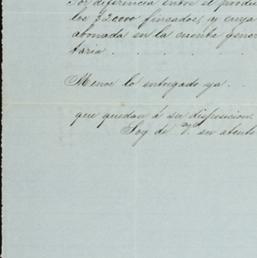 Por diferencia entre el produ
los 32000 fincados, y cuya
abonada en la cuenta gener
taria . . .
Menos lo entregado ya . .
que quedan á su disposicion.
Soy de V. su atento